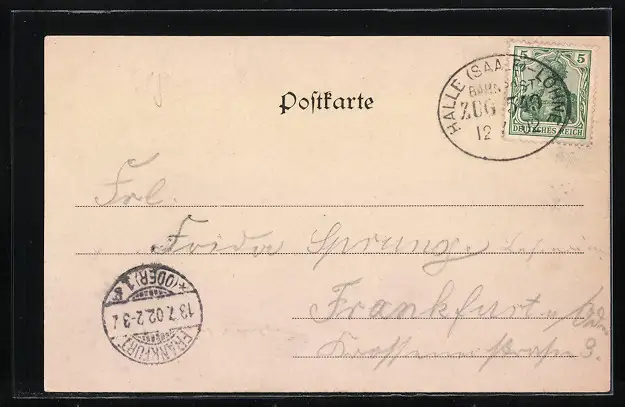 Postkarte
5 5
DEUTSCHES REICH
HALLE (SAALE)-LÖHNE
BAHNPOST
ZUG
12
Frl.
Frida Sprung
Frankfurt a/Oder
Crossenerstraße 3.
FRANKFURT
13.7.02.2-3
*(ODER) 1